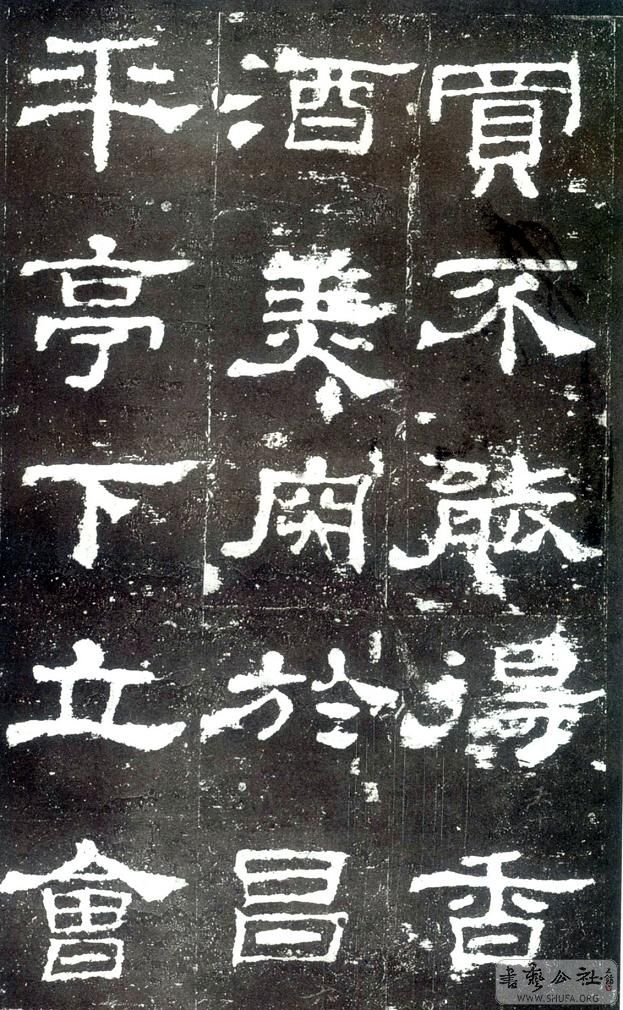 買不能得香
酒美肉於昌
平亭下立會
書藝公社
WWW.SHUFA.ORG